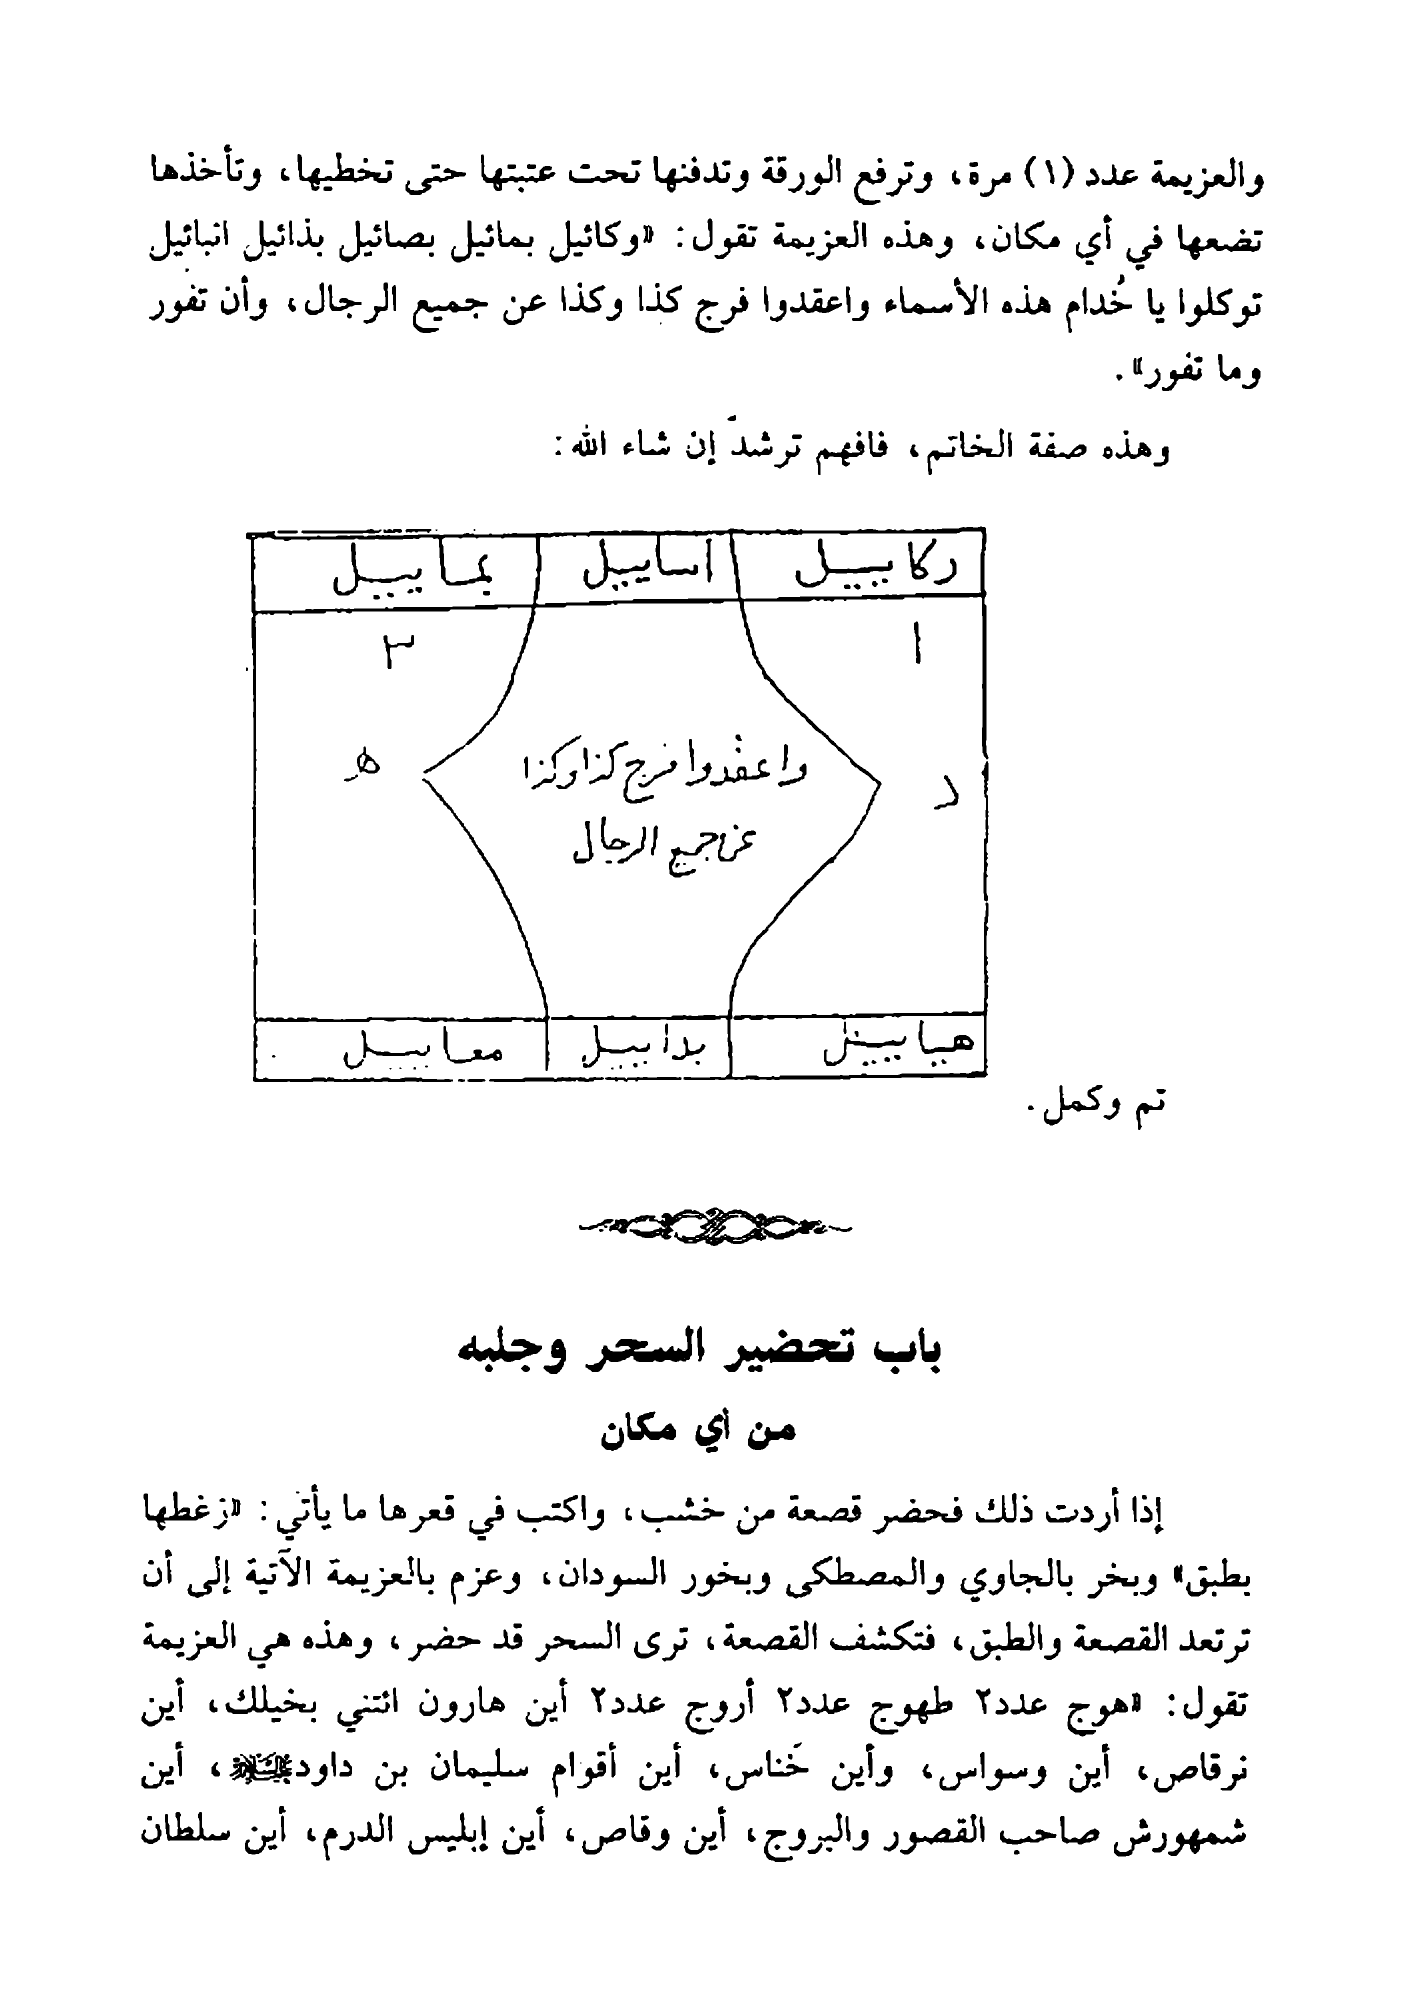 والعزيمة عدد (١) مرة، وترفع الورقة وتدفنها تحت عتبتها حتى تخطيها، وتأخذها
تضعها في أي مكان، وهذه العزيمة تقول: «وكائيل بمائيل بصائيل بذائيل انبائيل
توكلوا يا خُدام هذه الأسماء واعقدوا فرج كذا وكذا عن جميع الرجال، وأن تفور
وما تفور».
وهذه صفة الخاتم، فافهم ترشد إن شاء الله:
ركابيل اساييل يماييل
١ ٣
واعقدوا فرج كذا وكذا
د ه
عن جميع الرجال
هياييل بداييل معاييل
تم وكمل.
باب تحضير السحر وجلبه
من أي مكان
إذا أردت ذلك فحضر قصعة من خشب، واكتب في قعرها ما يأتي: «زغطها
بطبق» وبخر بالجاوي والمصطكى وبخور السودان، وعزم بالعزيمة الآتية إلى أن
ترتعد القصعة والطبق، فتكشف القصعة، ترى السحر قد حضر، وهذه هي العزيمة
تقول: «هوج عدد٢ طهوج عدد٢ أروج عدد٢ أين هارون ائتني بخيلك، أين
نرقاص، أين وسواس، وأين خَناس، أين أقوام سليمان بن داود، أين
شمهورش صاحب القصور والبروج، أين وقاص، أين إبليس الدرم، أين سلطان